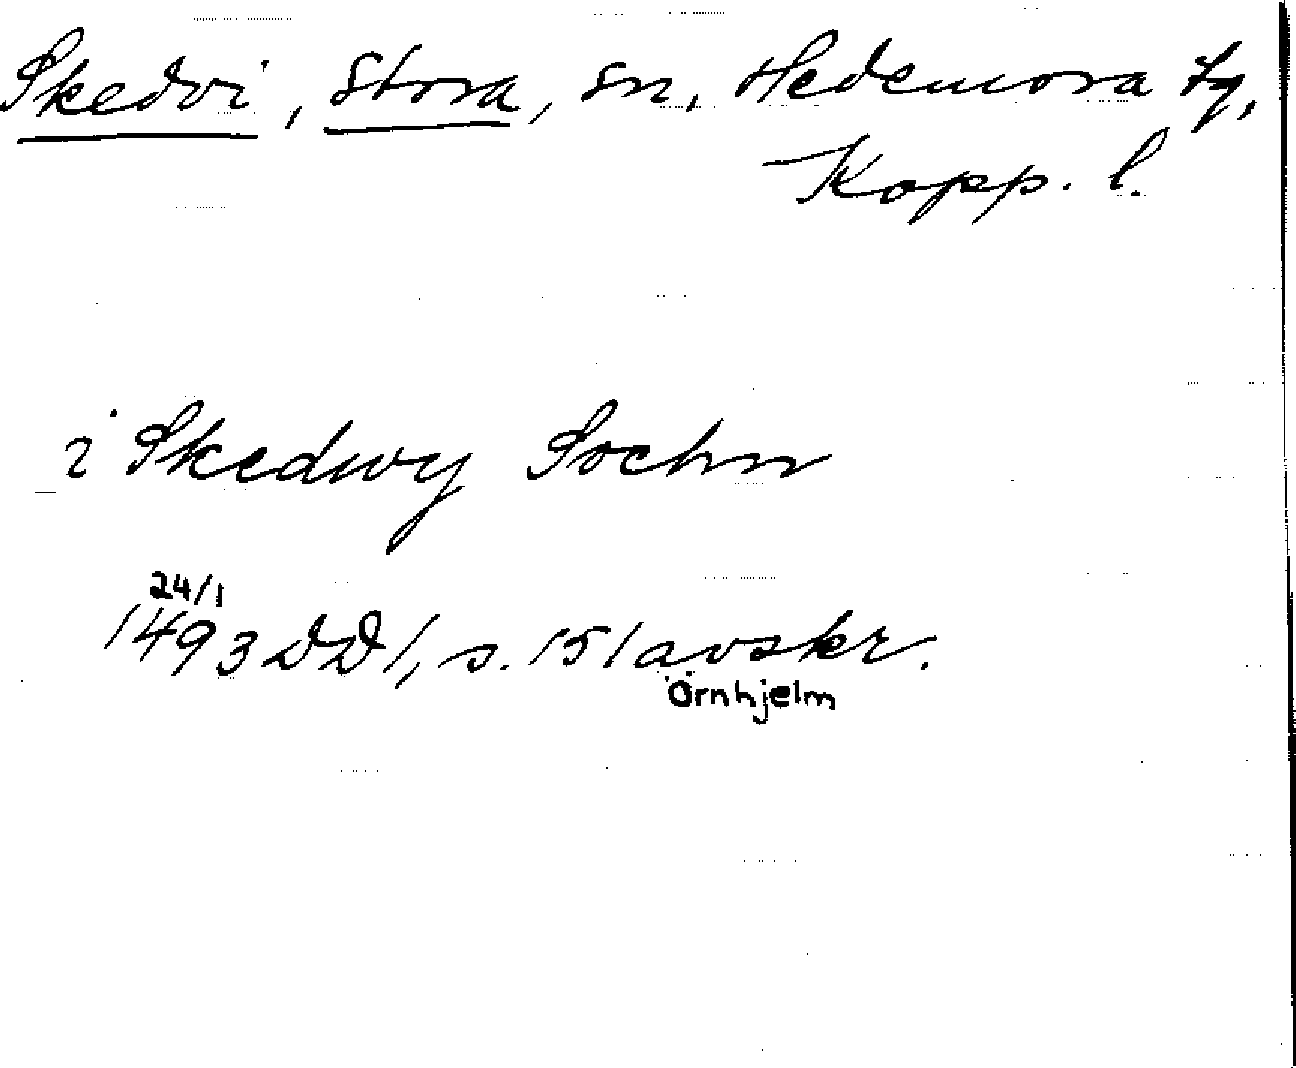 Skedvi, Stora, sn, Hedemora tg,
Kopp. l.
i Skedwy Sochn
24/1
1493 DD 1, s. 151 avskr.
Örnhjelm